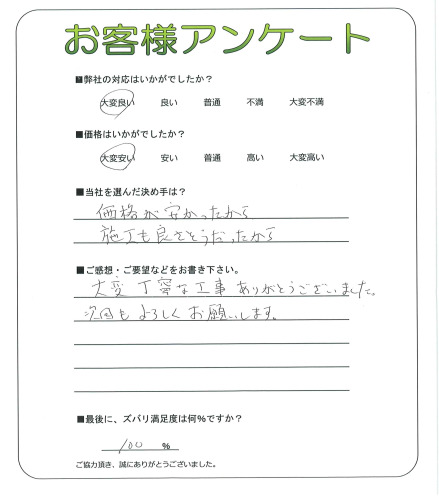 お客様アンケート
■弊社の対応はいかがでしたか？
大変良い　良い　普通　不満　大変不満
■価格はいかがでしたか？
大変安い　安い　普通　高い　大変高い
■当社を選んだ決め手は？
価格が安かったから
施工も良さそうだったから
■ご感想・ご要望などをお書き下さい。
大変 丁寧な工事 ありがとうございました。
次回も よろしく お願いします。
■最後に、ズバリ満足度は何％ですか？
100 ％
ご協力頂き、誠にありがとうございました。